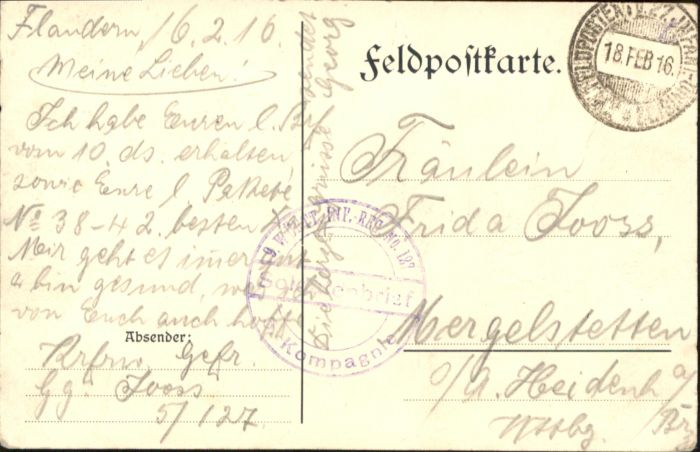 Flandern, 16.2.16.
Meine Lieben!
Ich habe Euren l. Br.
vom 10. ds. erhalten
sowie Eure l. Pakete
No 38-42. besten
Mir geht es immer gut
u. bin gesund, was ich
von Euch auch hoffe
Die herzl. Grüsse sendet
Georg
Absender:
Krfrw. Gefr.
Gg. Jooss
5/127.
Feldpostkarte.
18 FEB 16.
Fräulein
Frida Jooss,
Mergelstetten
O/A. Heidenh a/
Brz
Wttbg.
INF. REG. NO. 127
Soldatenbrief
5. Kompagnie